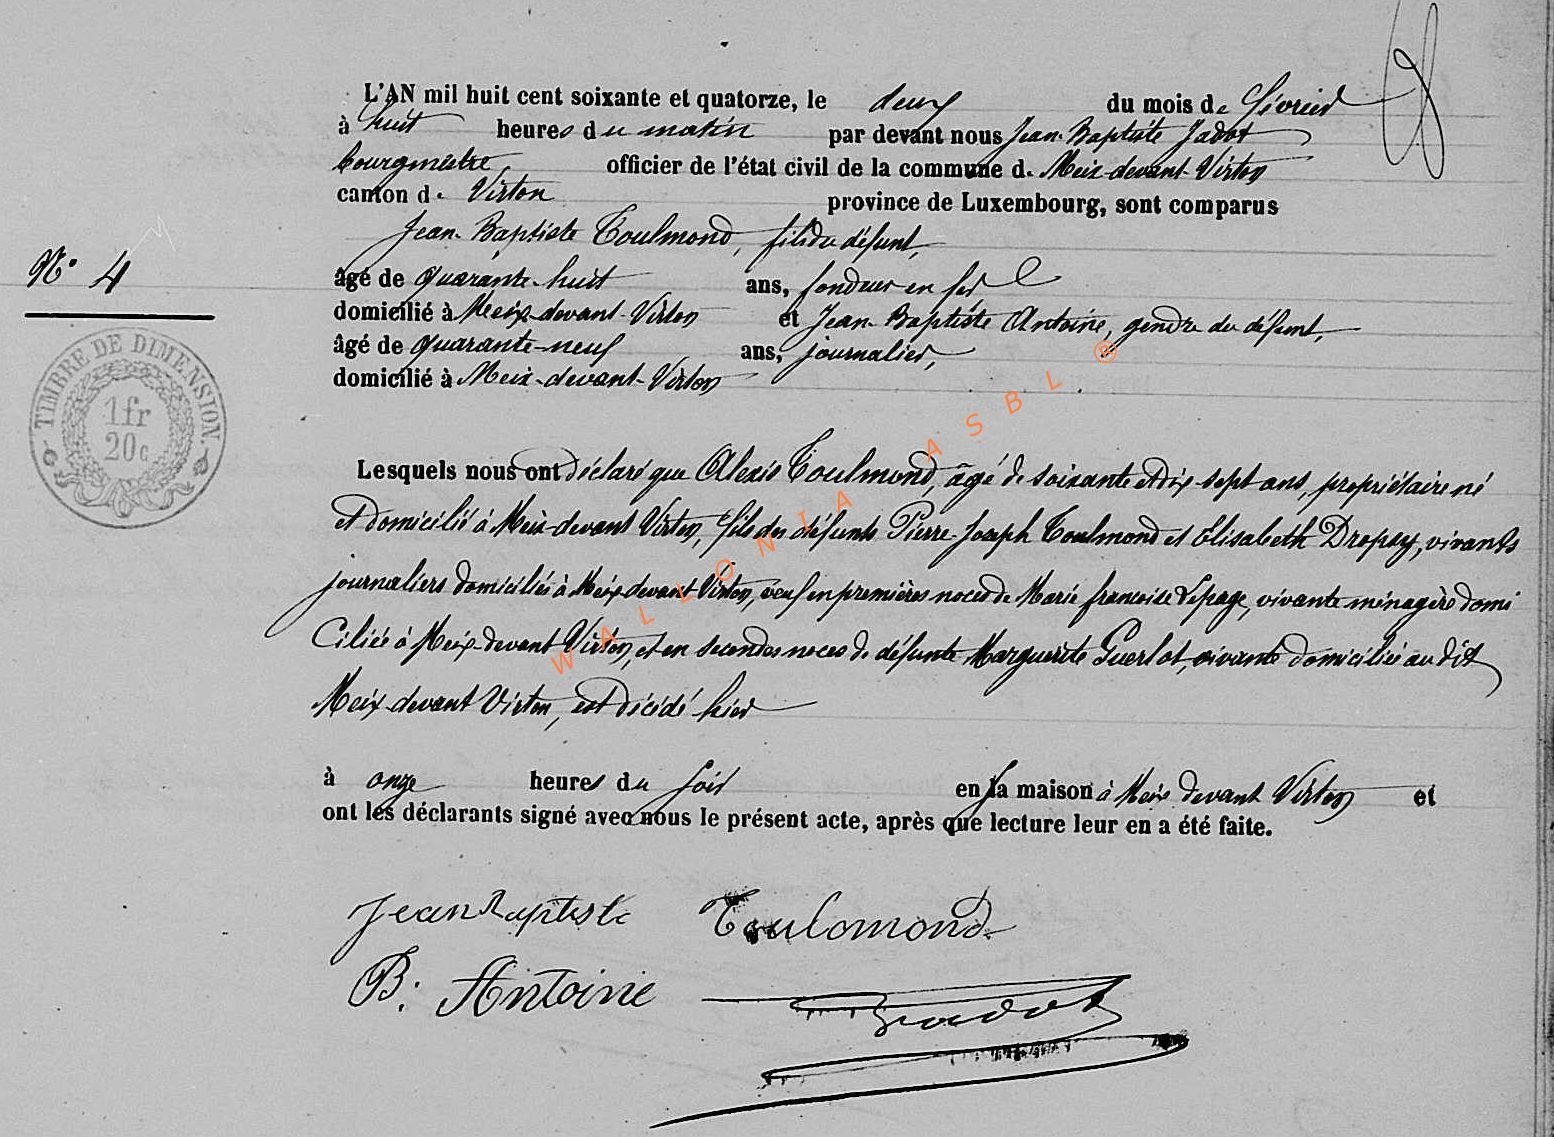 L'AN mil huit cent soixante et quatorze, le deux du mois de février
à huit heures du matin par devant nous Jean-Baptiste Jadot
bourgmestre officier de l'état civil de la commune de Meix-devant-Virton
canton de Virton province de Luxembourg, sont comparus
Jean-Baptiste Toulmond, fils du défunt,
N° 4
âgé de quarante-huit ans, fondeur en fer
domicilié à Meix-devant-Virton et Jean-Baptiste Antoine, gendre du défunt,
âgé de quarante-neuf ans, journalier,
domicilié à Meix-devant-Virton
TIMBRE DE DIMENSION.
1 fr
20c
Lesquels nous ont déclaré que Alexis Toulmond, âgé de soixante et dix sept ans, propriétaire né
et domicilié à Meix-devant Virton, fils des défunts Pierre-Joseph Toulmond et Elisabeth Dropsy, vivants
journaliers domiciliés à Meix-devant Virton, veuf en premières noces de Marie françoise Lepage, vivante ménagère domi
ciliée à Meix-devant Virton, et en secondes noces de défunte Marguerite Guerlot, vivante domiciliée au dit
Meix-devant Virton, est décédé hier
à onze heures du soir en sa maison à Meix devant Virton et
ont les déclarants signé avec nous le présent acte, après que lecture leur en a été faite.
Jean Baptiste Toulomond
B: Antoine Jadot
WALLONIA ASBL ®